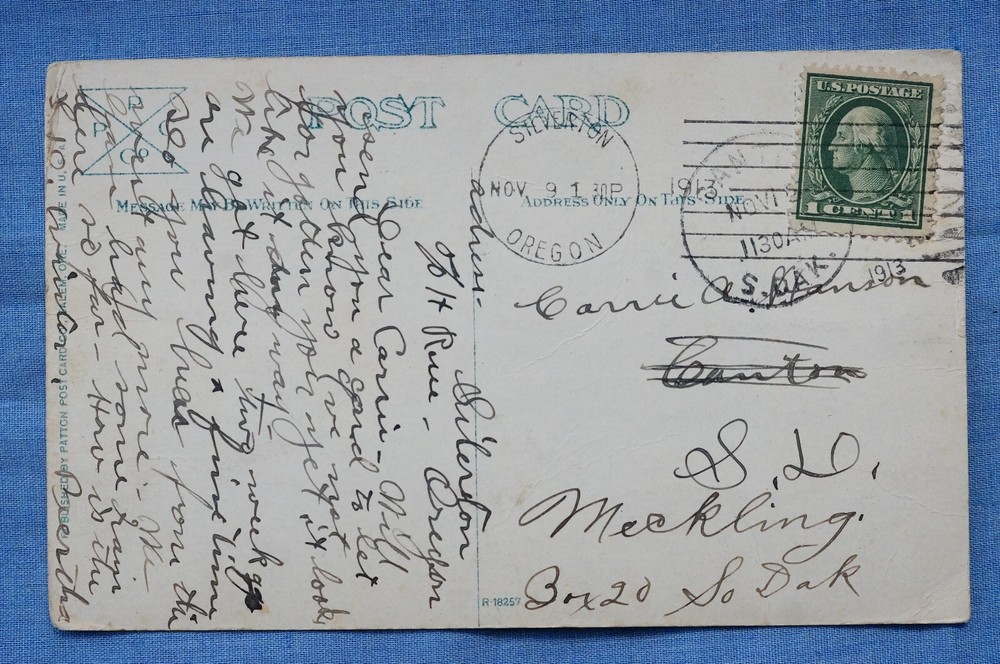 POST CARD
P P C Co
MESSAGE MAY BE WRITTEN ON THIS SIDE
ADDRESS ONLY ON THIS SIDE
SILVERTON
NOV 9 1 30P 1913
OREGON
NOV 1
1130AM
S. DAK.
1913
U.S. POSTAGE
1 CENT 1
Carrie A. Hanson
Canton
S. D.
Meckling.
Box 20 So Dak
R-18257
PUBLISHED BY PATTON POST CARD CO. SALEM, ORE. MADE IN U.S.A.
address- Silverton
% H Rue - Oregon
Dear Carrie - Will
send you a card to let
you know I've not
forgotten you yet if it looks
like it any way.
We got here two weeks ago
are having a fine time
Do you hear from the
any more - We
have had some rain
here so far - How is the
Bertha